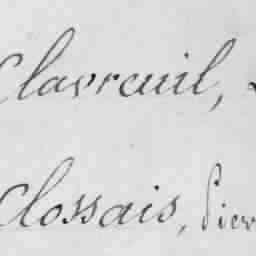 Clavreuil,
Clossais, Pier